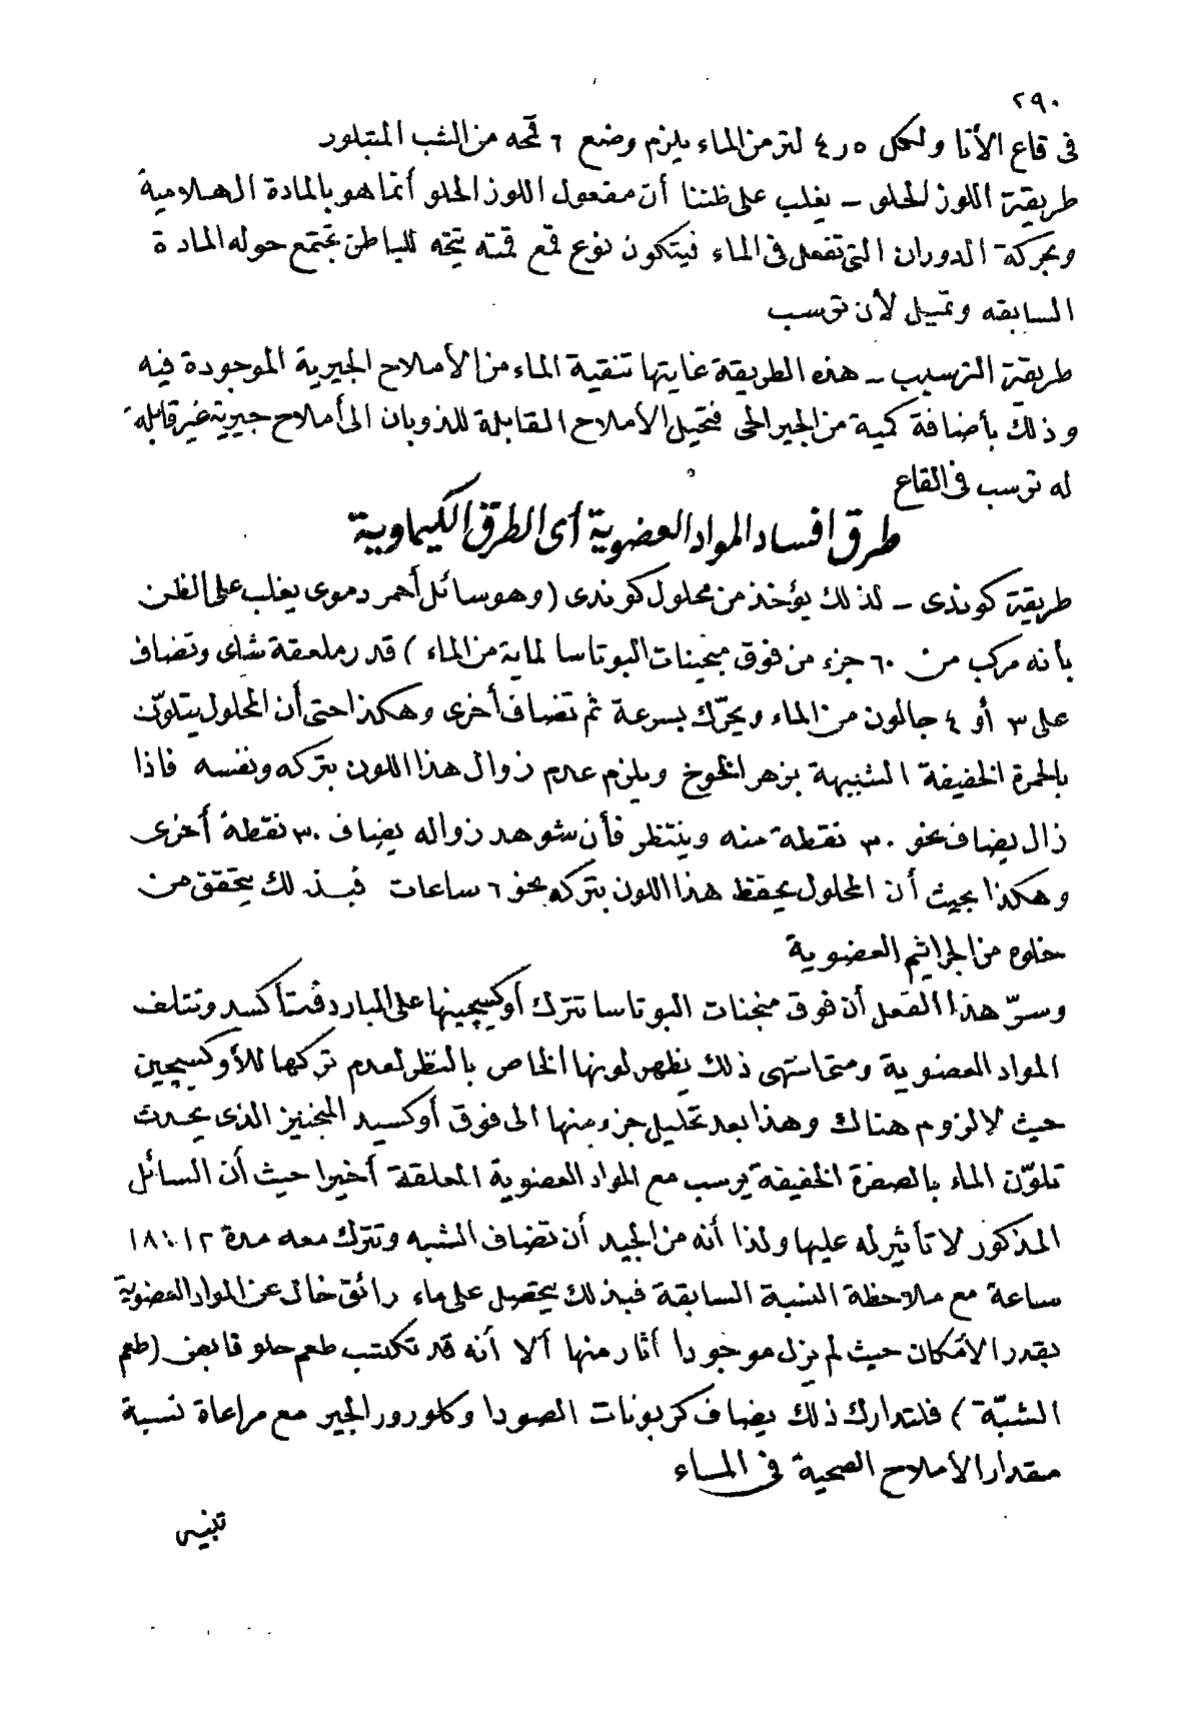 ٢٩٠
فى قاع الأنا ولكل ٥ر٤ لتر من الماء يلزم وضع ٦ قمحه من الشب المتبلور
طريقة اللوز الحلو ــ يغلب على ظننا أن مفعول اللوز الحلو أنما هو بالمادة الهلامية
وبحركة الدوران التى تفعل فى الماء فيتكون نوع قمع قمته تيجّه للباطن يجتمع حوله المادة
السابقه وتميل لأن ترسب
طريقة الترسيب ــ هذه الطريقة غايتها تنقية الماء من الأملاح الجيرية الموجودة فيه
وذلك بأضافة كمية من الجير الحى فتحيل الأملاح القابلة للذوبان الى أملاح جيرية غير قابلة
له ترسب فى القاع
طرق افساد المواد العضوية أى الطرق الكيماوية
طريقة كوندى ــ لذلك يؤخذ من محلول كوندى (وهو سائل أحمر دموى يغلب على الظن
بأنه مركب من ٦٠ جزء من فوق منجينات البوتاسا لماية من الماء) قدر ملعقة شاى وتضاف
على ٣ أو ٤ جالون من الماء ويحرّك بسرعة ثم تضاف أخرى وهكذا حتى أن المحلول يتلوّن
بالحمرة الخفيفة الشبيهة بزهر الخوخ ويلزم عدم زوال هذا اللون بتركه ونفسه فاذا
زال يضاف نحو ٣٠ نقطة منه وينتظر فأن شوهد زواله يضاف ٣٠ نقطة أخرى
وهكذا بحيث أن المحلول يحفظ هذا اللون بتركه نحو ٦ ساعات فبذلك يتحقق من
خلوه من الجراثيم العضوية
وسرّ هذا الفعل أن فوق منجنات البوتاسا تترك أوكسيجينها على البارد فتتأكسد وتتلف
المواد العضوية ومتى انتهى ذلك يظهر لونها الخاص بالنظر لعدم تركها للأوكسيجين
حيث لا لزوم هناك وهذا بعد تحليل جزء منها الى فوق أوكسيد المنجنيز الذى يحدث
تلوّن الماء بالصفرة الخفيفة يرسب مع المواد العضوية المعلقة أخيرا حيث أن السائل
المذكور لا تأثير له عليها ولذا أنه من الجيد أن تضاف الشبه وتترك معه مدة ١٢ : ١٨
ساعة مع ملاحظة النسبة السابقة فبذلك يتحصل على ماء رائق خال عن المواد العضوية
بقدر الأمكان حيث لم يزل موجودا أثار منها ألا أنه قد تكتسب طعم حلو قابض (طعم
الشبّة) فلتدارك ذلك يضاف كربونات الصودا وكلورور الجير مع مراعاة نسبة
مقدار الأملاح الصحية فى الماء
تنبيه